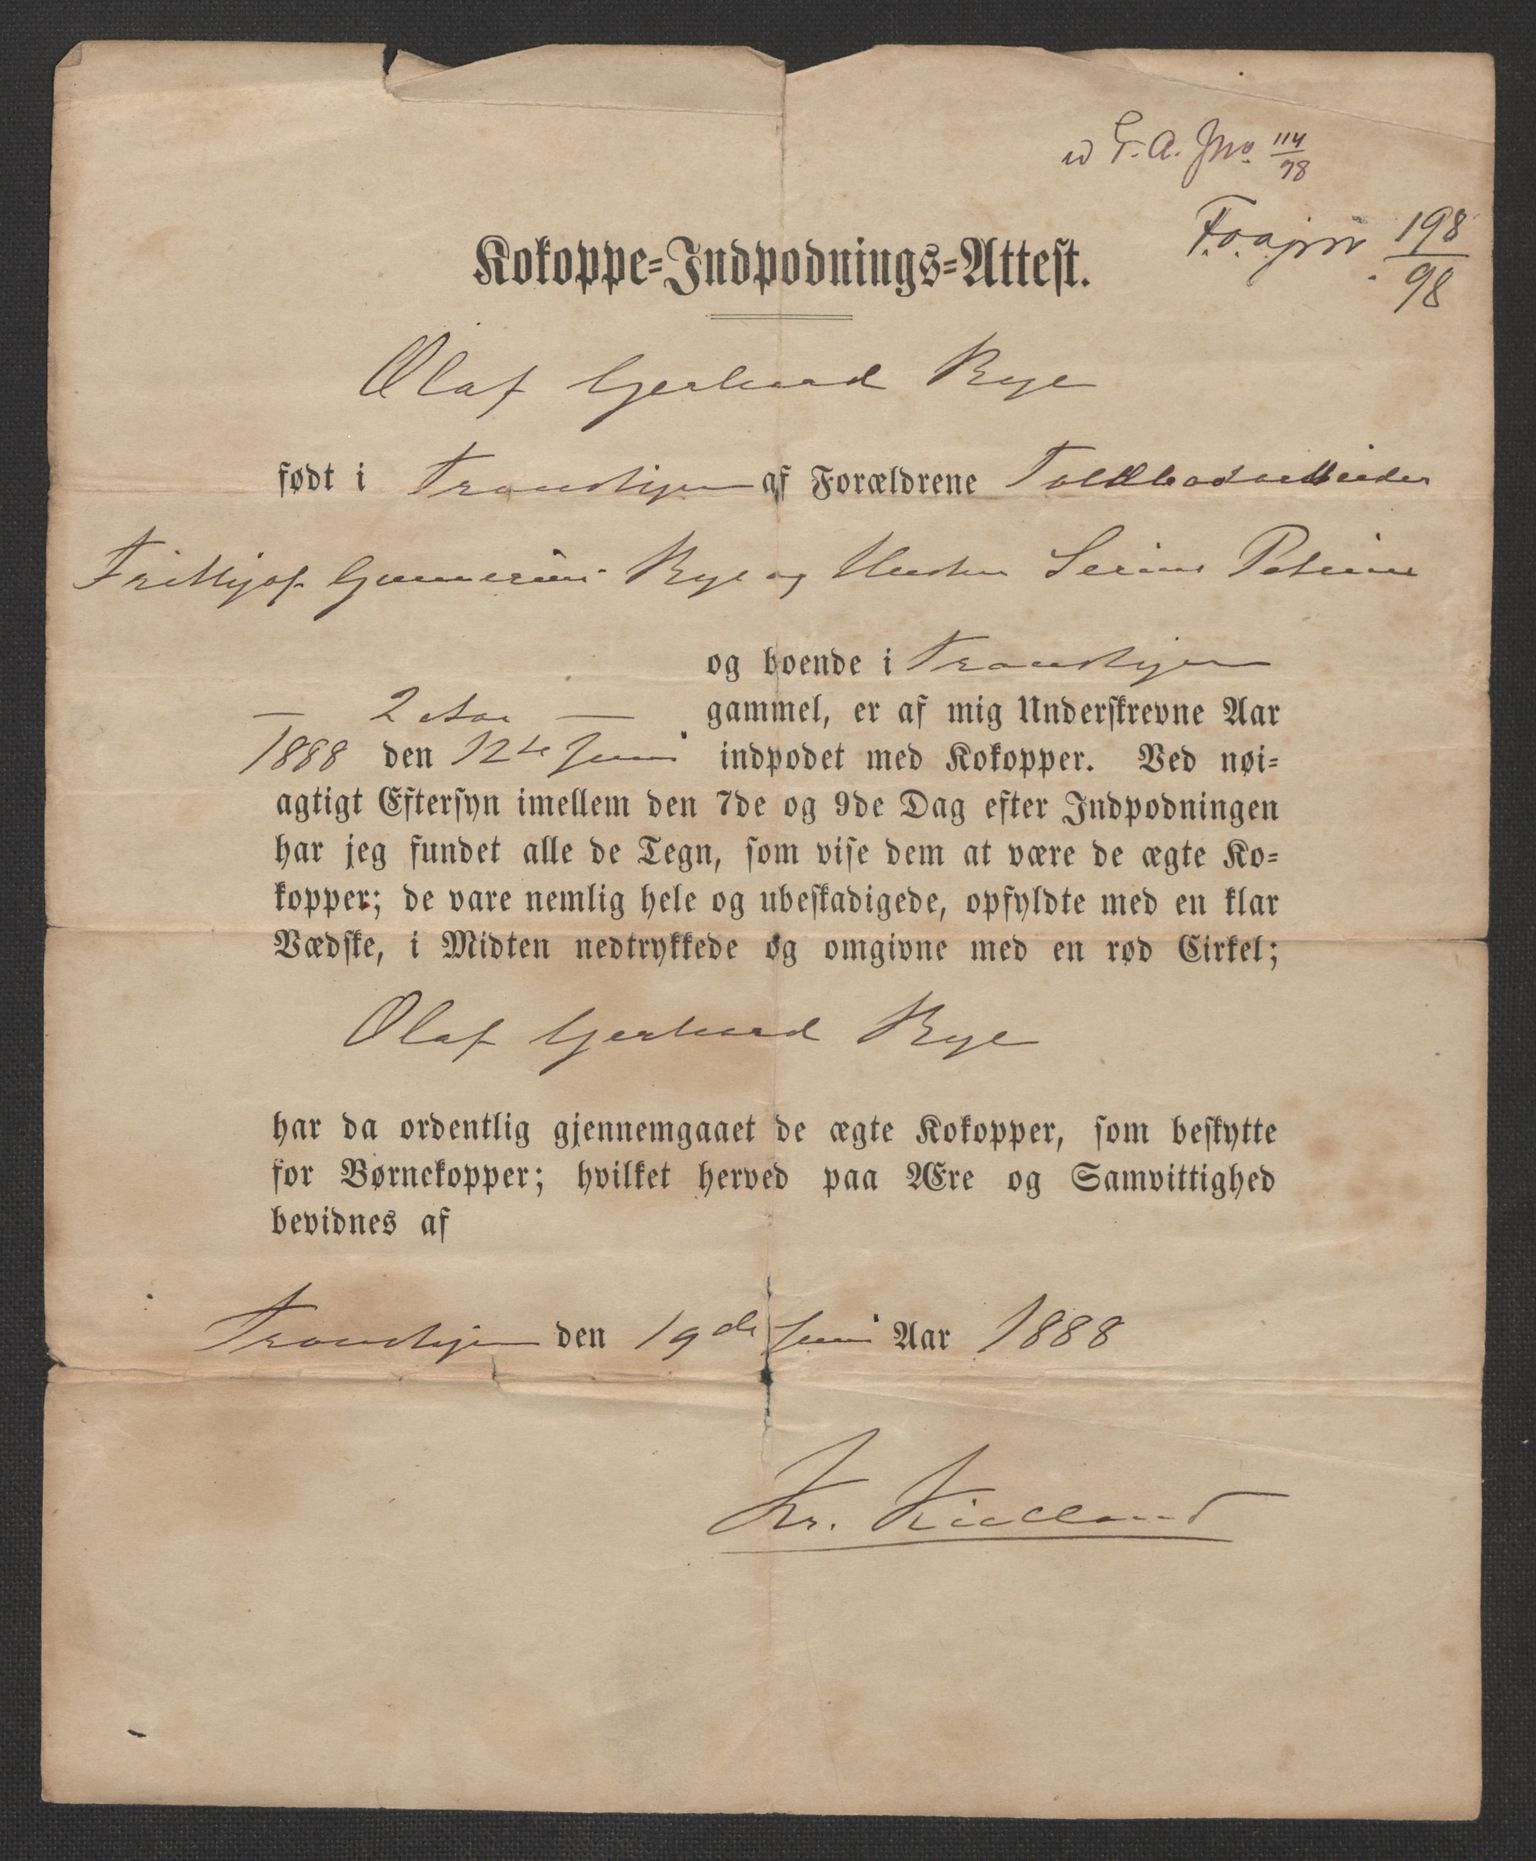 T. A. Jno. 114/98
198/98
Kokoppe-Indpodnings-Attest.
Olaf Gerhard Rye
født i Trondhjem af Forældrene Toldbodarbeider
Frithjof Gunerius Rye og Hustru Serine Petrine
og boende i Trondhjem
— 2 Aar — gammel, er af mig Underskrevne Aar
1888 den 12te Juni indpodet med Kokopper. Ved nøi-
agtigt Eftersyn imellem den 7de og 9de Dag efter Indpodningen
har jeg fundet alle de Tegn, som vise dem at være de ægte Ko-
kopper; de vare nemlig hele og ubeskadigede, opfyldte med en klar
Vædske, i Midten nedtrykkede og omgivne med en rød Cirkel;
Olaf Gerhard Rye
har da ordentlig gjennemgaaet de ægte Kokopper, som beskytte
for Børnekopper; hvilket herved paa Ære og Samvittighed
bevidnes af
Trondhjem den 19de Juni Aar 1888
Kr. Kielland